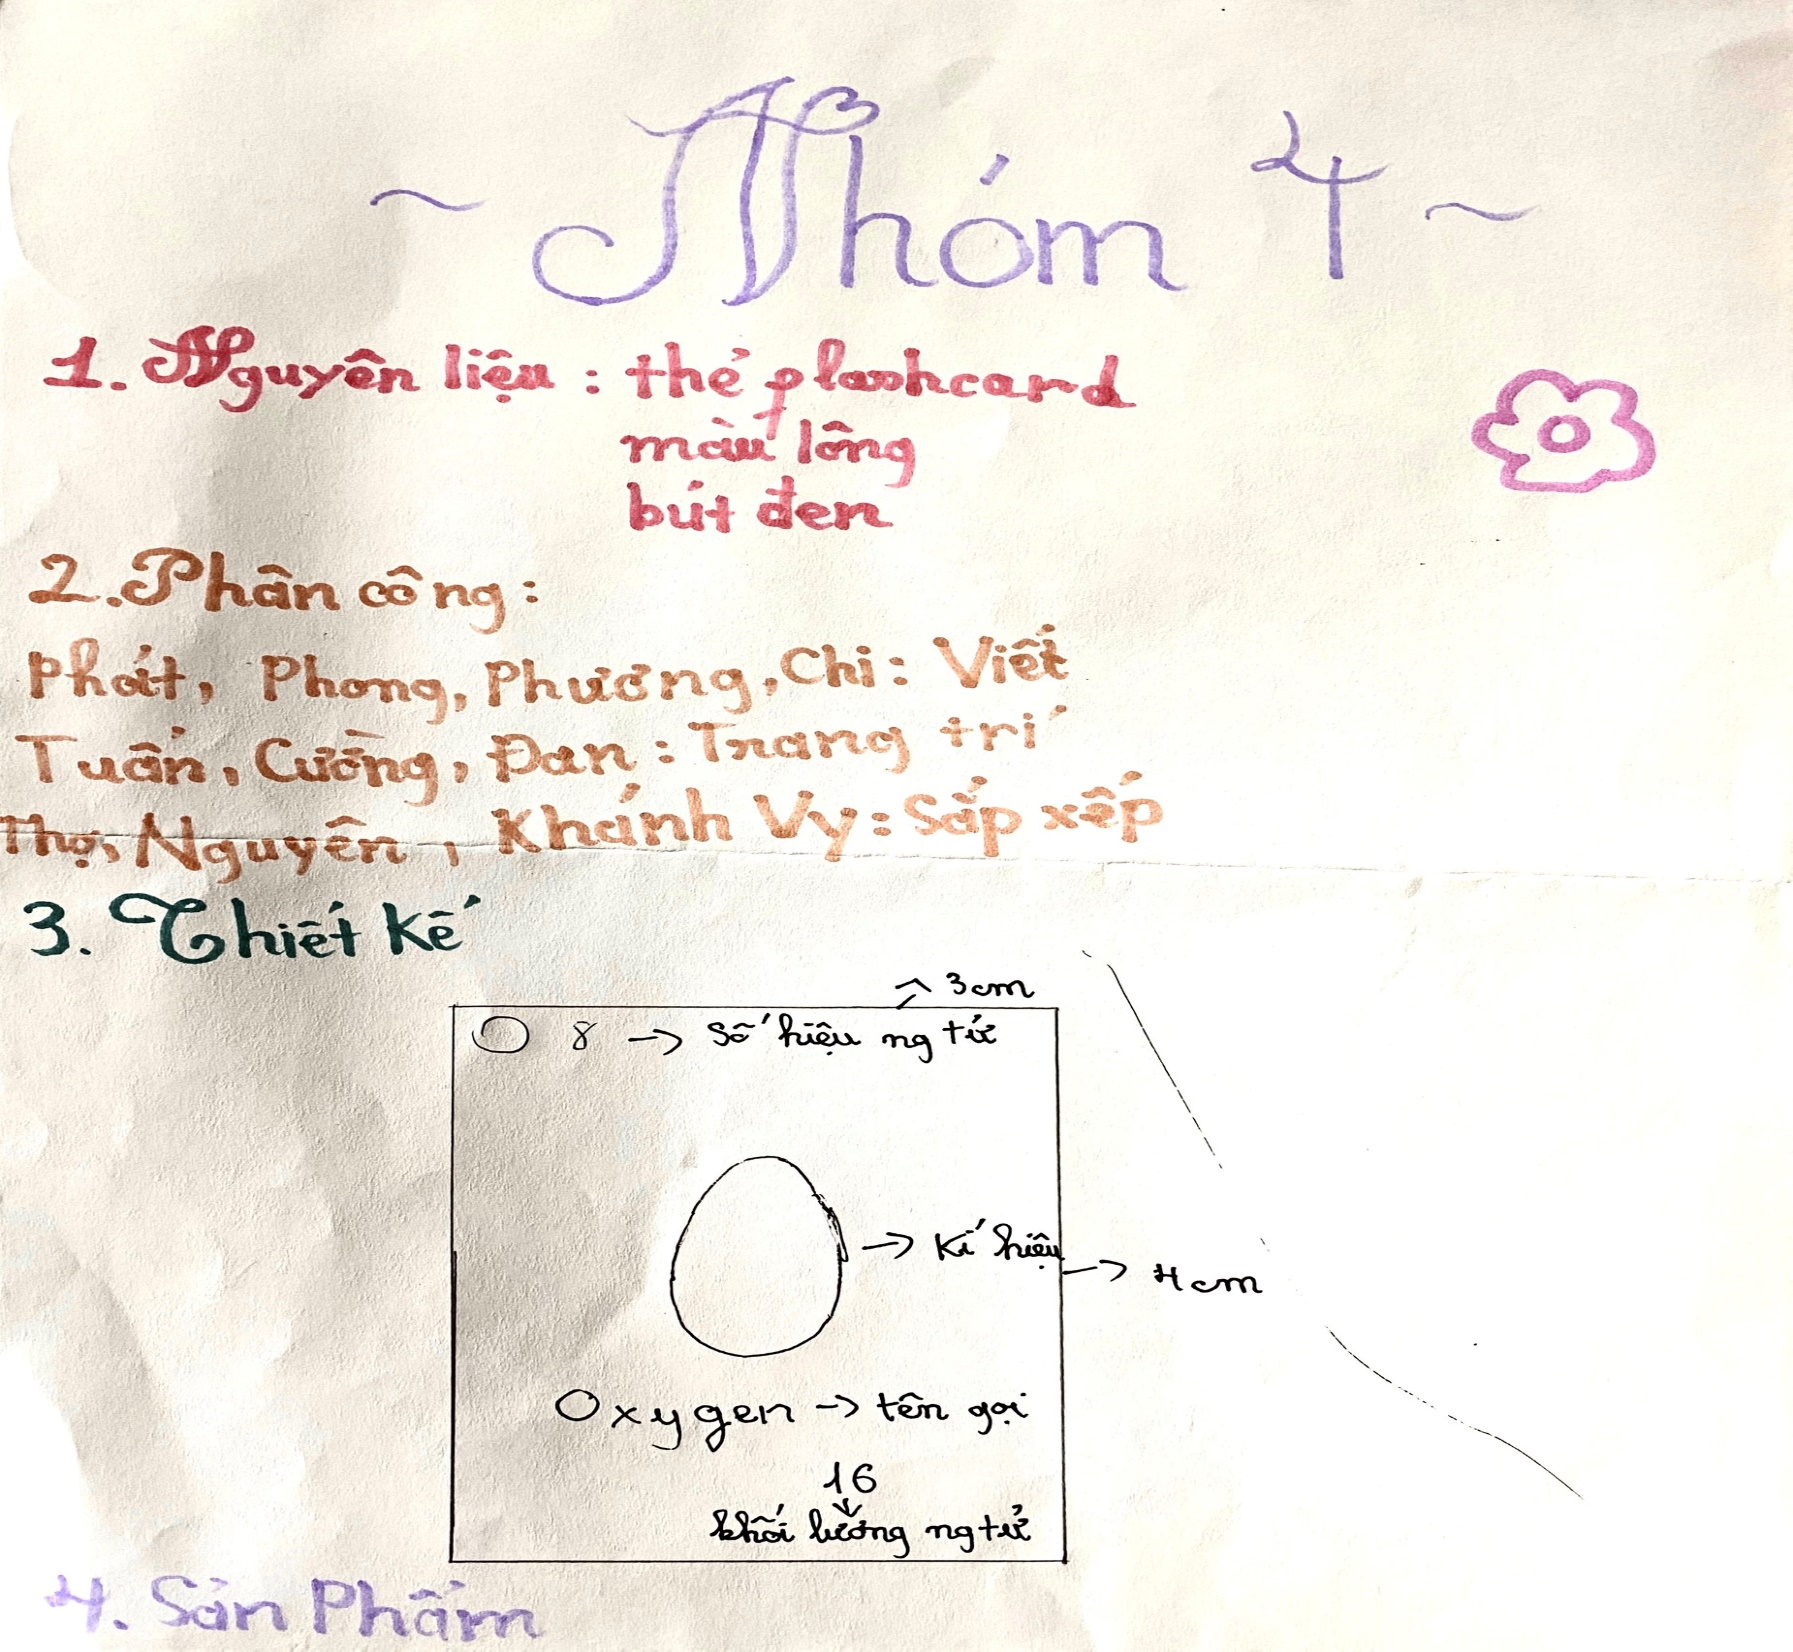 ~ Nhóm 4 ~
1. Nguyên liệu : thẻ flashcard
màu lông
bút đen
2. Phân công :
Phát, Phong, Phương, Chi : Viết
Tuấn, Cường, Đan : Trang trí
Thọ, Nguyên, Khánh Vy : Sắp xếp
3. Thiết kế
3cm
8 → Số hiệu ng tử
→ Kí hiệu
→ 4cm
Oxygen → tên gọi
16
khối lượng ng tử
4. Sản Phẩm